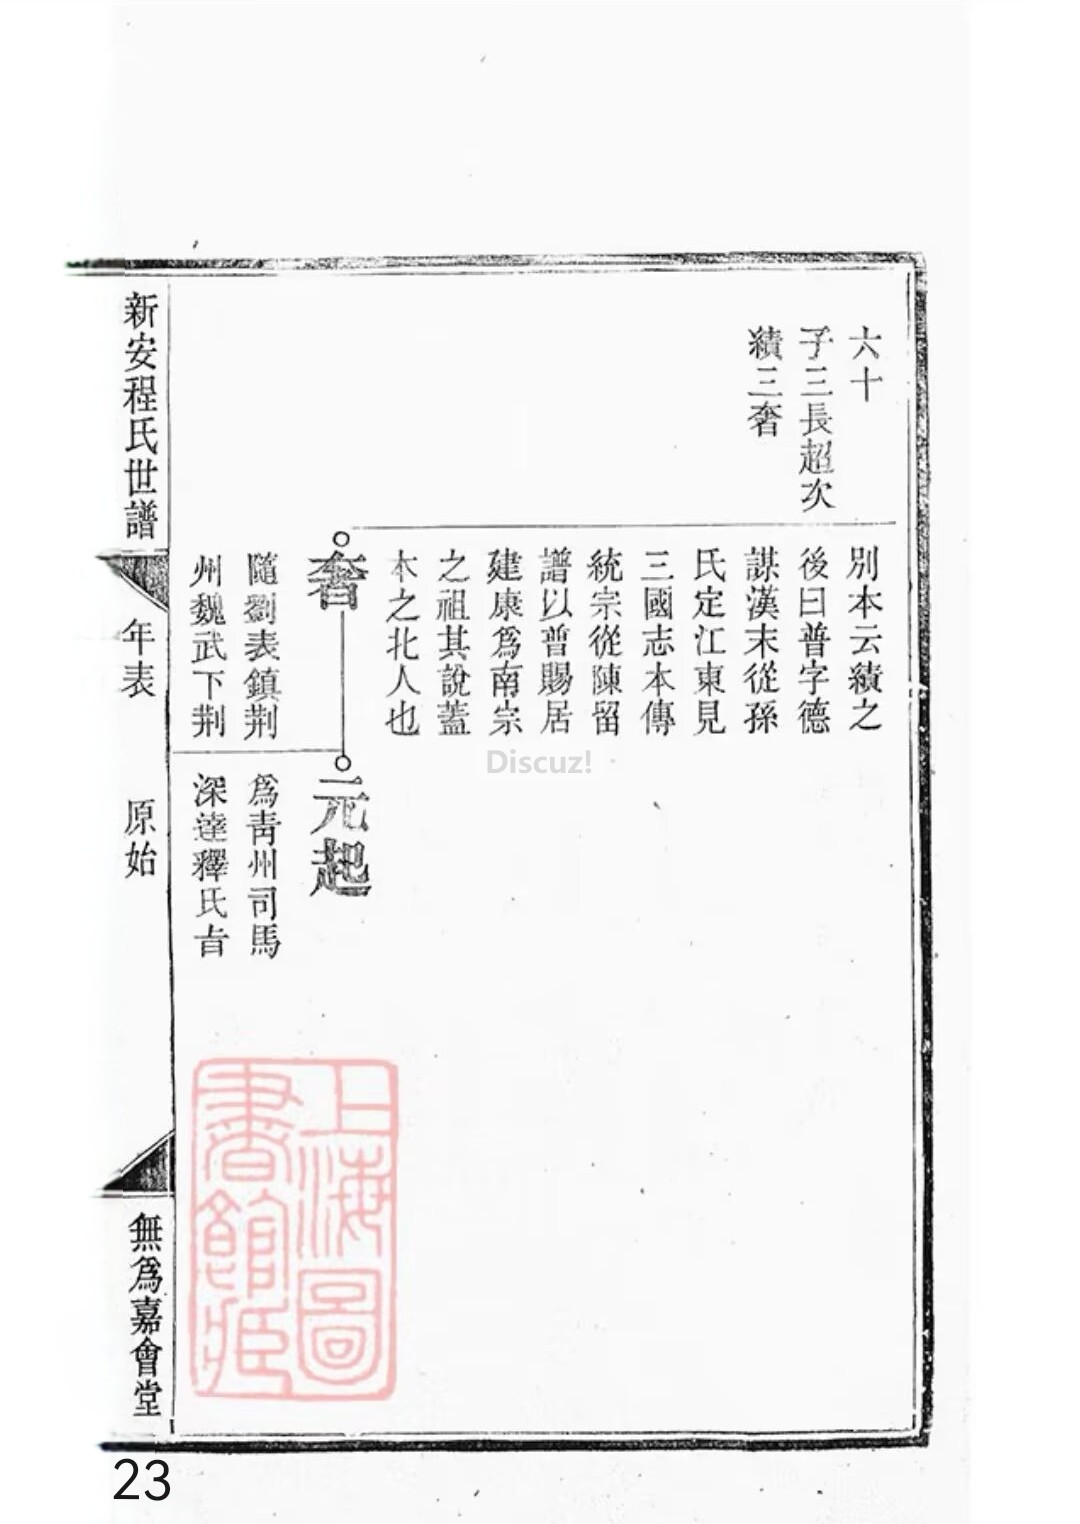 六十
子三長超次
績三奢
別本云績之
後曰普字德
謀漢末從孫
氏定江東見
三國志本傳
統宗從陳留
譜以普賜居
建康爲南宗
之祖其說蓋
本之北人也
奢
隨劉表鎮荆
州魏武下荆
元起
爲青州司馬
深達釋氏旨
新安程氏世譜
年表
原始
無爲嘉會堂
上海圖
書館藏
Discuz!
23